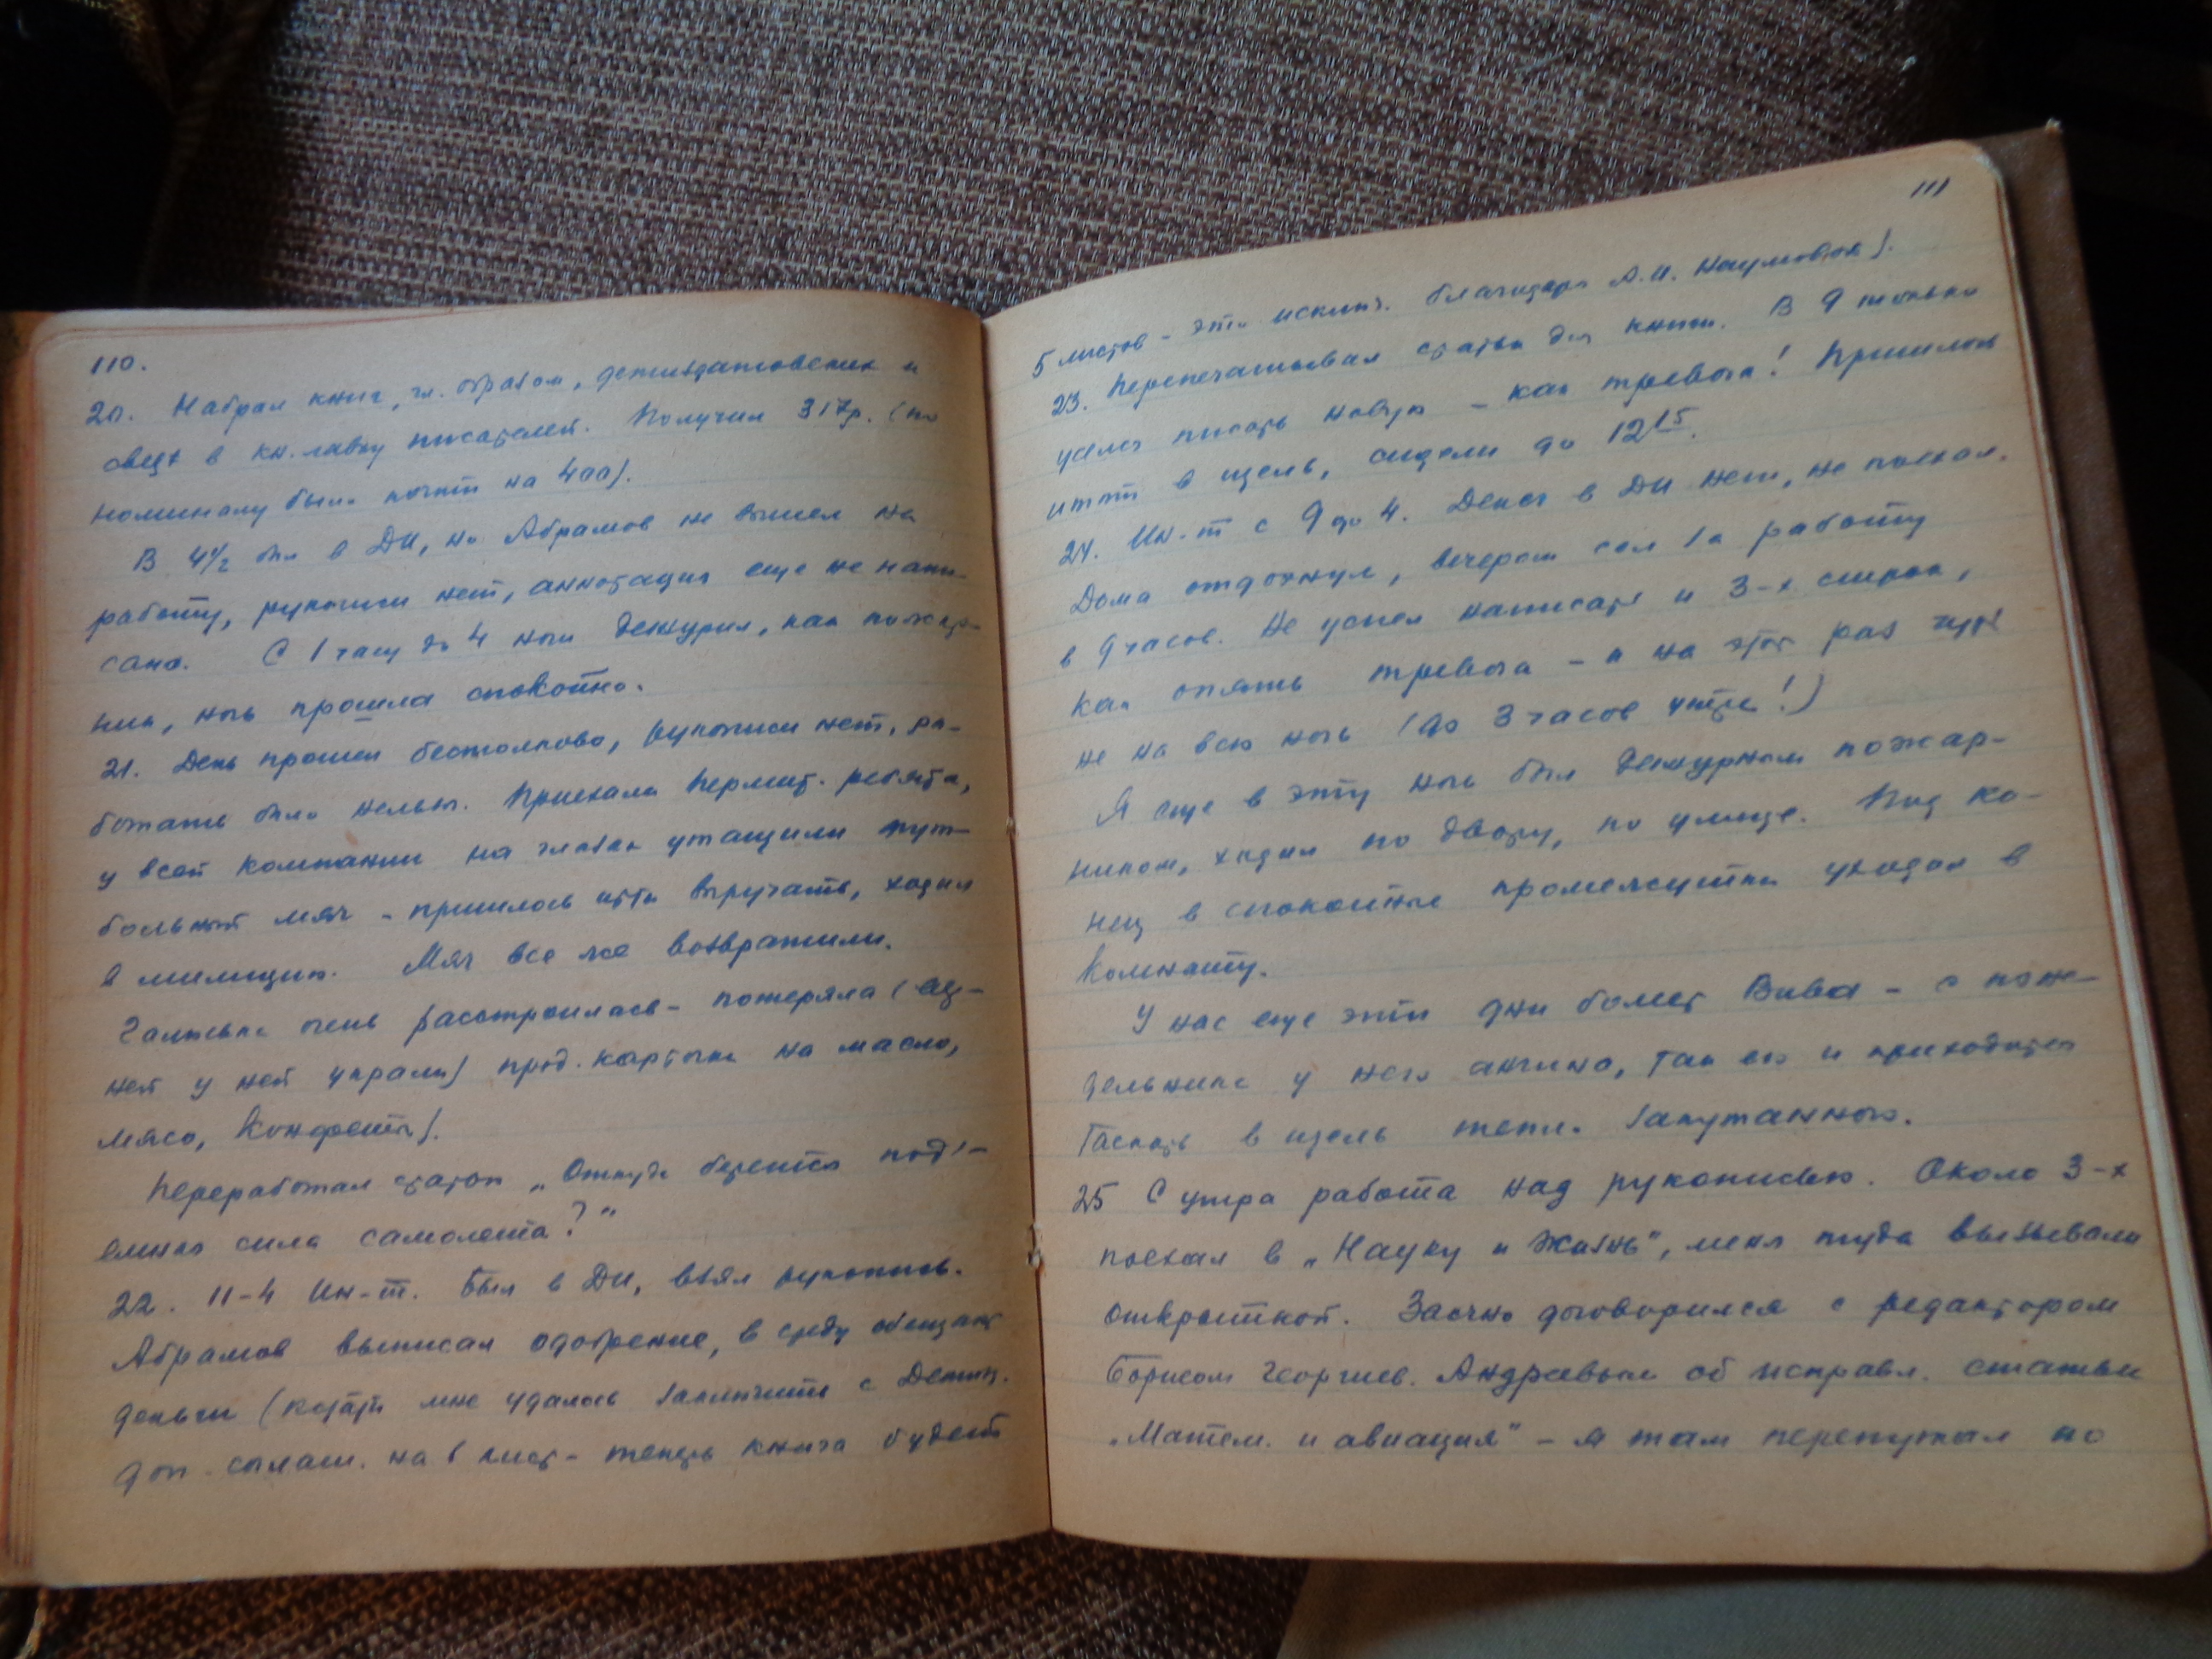 110.
20. Набрал книг, гл. образом, детиздатовских и
свез в кн. лавку писателей. Получил 317р. (по
номиналу было почти на 400).
В 4½ был в ДИ, но Абрамов не вышел на
работу, рукописи нет, аннотация еще не напи-
сана. С 1 часу до 4 ночи дежурил, как пожар-
ник, ночь прошла спокойно.
21. День прошел бестолково, рукописи нет, ра-
ботать было нельзя. Приехали Пермит. ребята,
у всей компании на глазах утащили фут-
больный мяч - пришлось итти выручать, ходил
в милицию. Мяч все же возвратили.
Галюська очень расстроилась - потеряла (вер-
ней у ней украли) прод. карточки на масло,
мясо, конфеты).
Переработал статью „Откуда берется под'-
емная сила самолета?"
22. 11-4 Ин-т. Был в ДИ, взял рукопись.
Абрамов выписал одобрение, в среду обещают
деньги (кстати мне удалось заключить с Детиз.
доп. соглаш. на 1 лист - теперь книга будет
111
5 листов - это исключ. благодаря А.И. Наумовой).
23. Перепечатывал статьи для книги. В 9 только
уселся писать новую - как тревога! Пришлось
итти в щель, сидели до 12 15.
24. Ин-т с 9 до 4. Денег в ДИ нет, не поехал.
Дома отдохнул, вечером сел за работу
в 9 часов. Не успел написать и 3-х строк,
как опять тревога - и на этот раз чуть
не на всю ночь (до 3 часов утра!)
Я еще в эту ночь был дежурным пожар-
ником, ходил по двору, по улице. Под ко-
нец в спокойные промежутки уходил в
комнату.
У нас еще эти дни болеет Вива - с поне-
дельника у него ангина, так его и приходится
таскать в щель тепло закутанного.
25 С утра работа над рукописью. Около 3-х
поехал в „Науку и Жизнь", меня туда вызывали
открыткой. Заочно договорился с редактором
Борисом Георгиев. Андреевым об исправл. статьи
„Матем. и авиация" - я там перепутал по